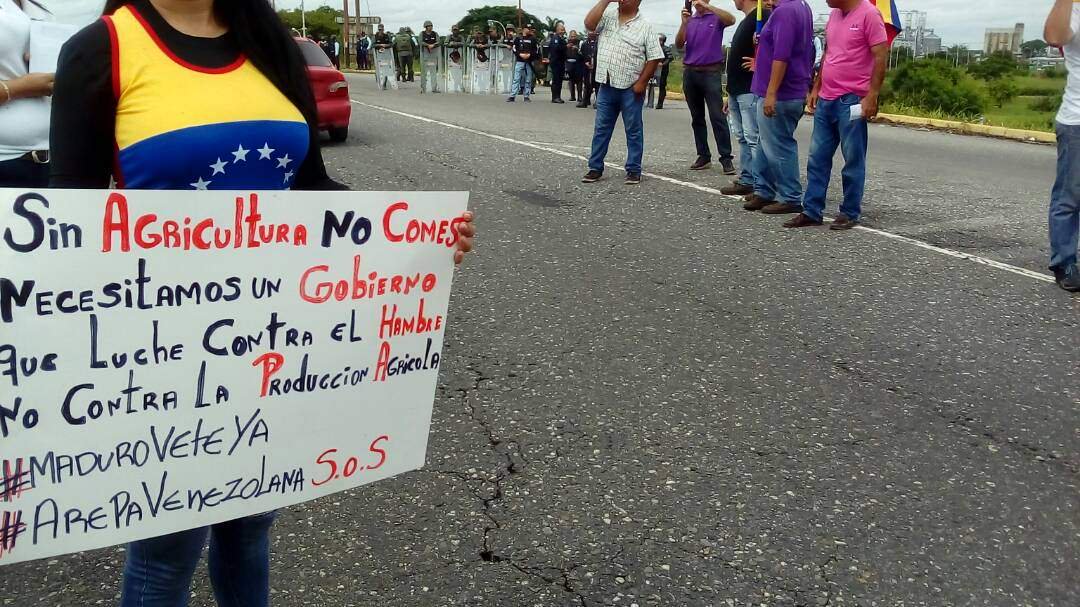 Sin Agricultura No Comes
Necesitamos un Gobierno
que Luche Contra el Hambre
No Contra la Produccion Agricola
#MADUROVeteYA
#ArepaVenezolana S.O.S